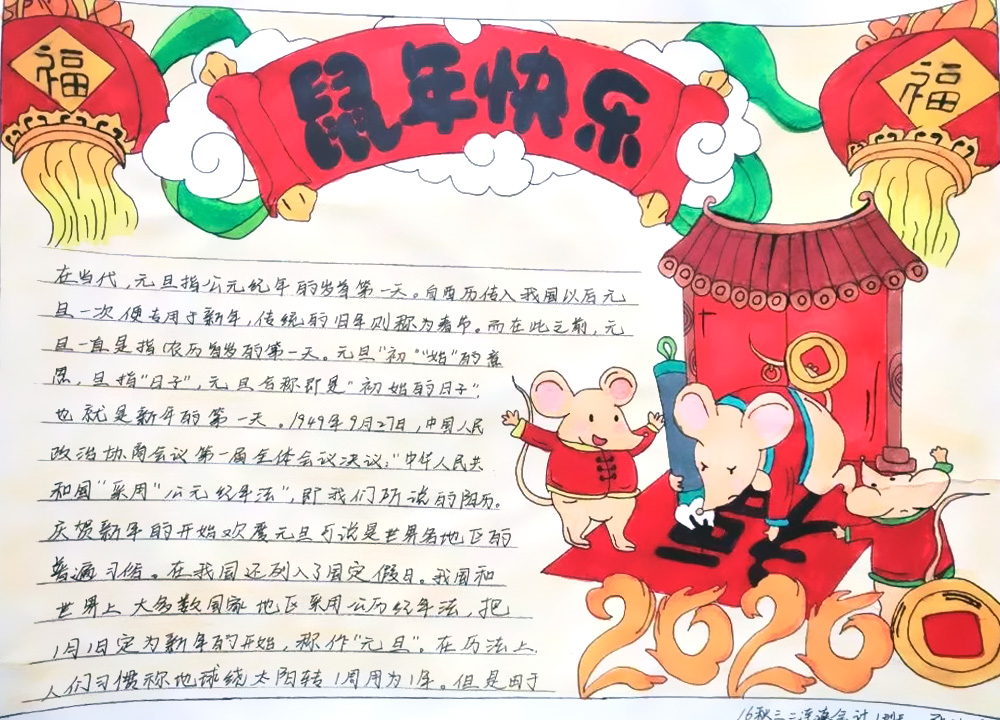 福
鼠年快乐
福
在当代，元旦指公元纪年的岁首第一天。自西历传入我国以后元
旦一次便专用于新年，传统的旧年则称为春节。而在此之前，元
旦一直是指农历岁首的第一天。元旦"初""始"的意
思，旦指"日子"，元旦合称即是"初始的日子"，
也就是新年的第一天。1949年9月27日，中国人民
政治协商会议第一届全体会议决议："中华人民共
和国"采用"公元纪年法"，即我们所说的阳历。
庆贺新年的开始欢度元旦可说是世界各地区的
普遍习俗。在我国还列入了固定假日。我国和
世界上大多数国家地区采用公历纪年法，把
1月1日定为新年的开始，称作"元旦"。在历法上，
人们习惯称地球绕太阳转1周用为1年。但是由于
2026
16秋三二连海会计1班